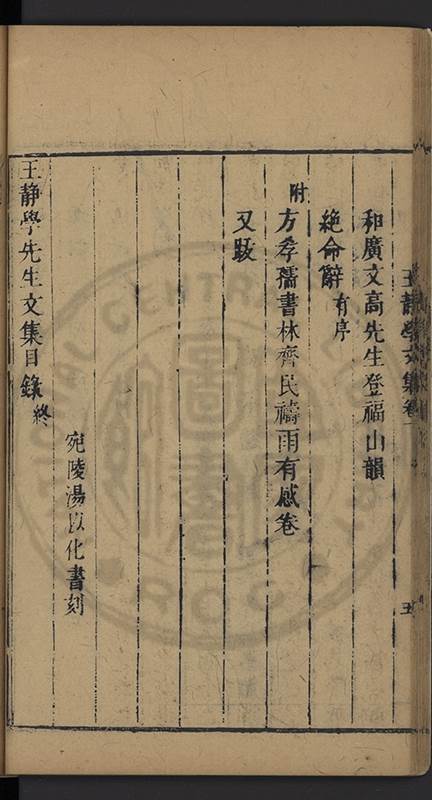 王靜學文集卷 五
和廣文高先生登福山韻
絕命辭 有序
附 方孝孺書林齊民禱雨有感卷
又跋
宛陵湯㠯化書刻
王靜學先生文集目錄 終